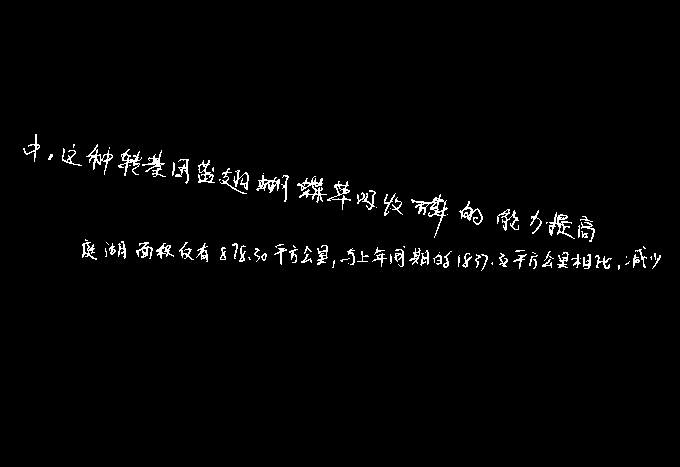 中,这种转基因蓝翅蝴蝶草吸收磷的能力提高
庭湖面积仅有878.30平方公里,与上年同期的1837.5平方公里相比,减少